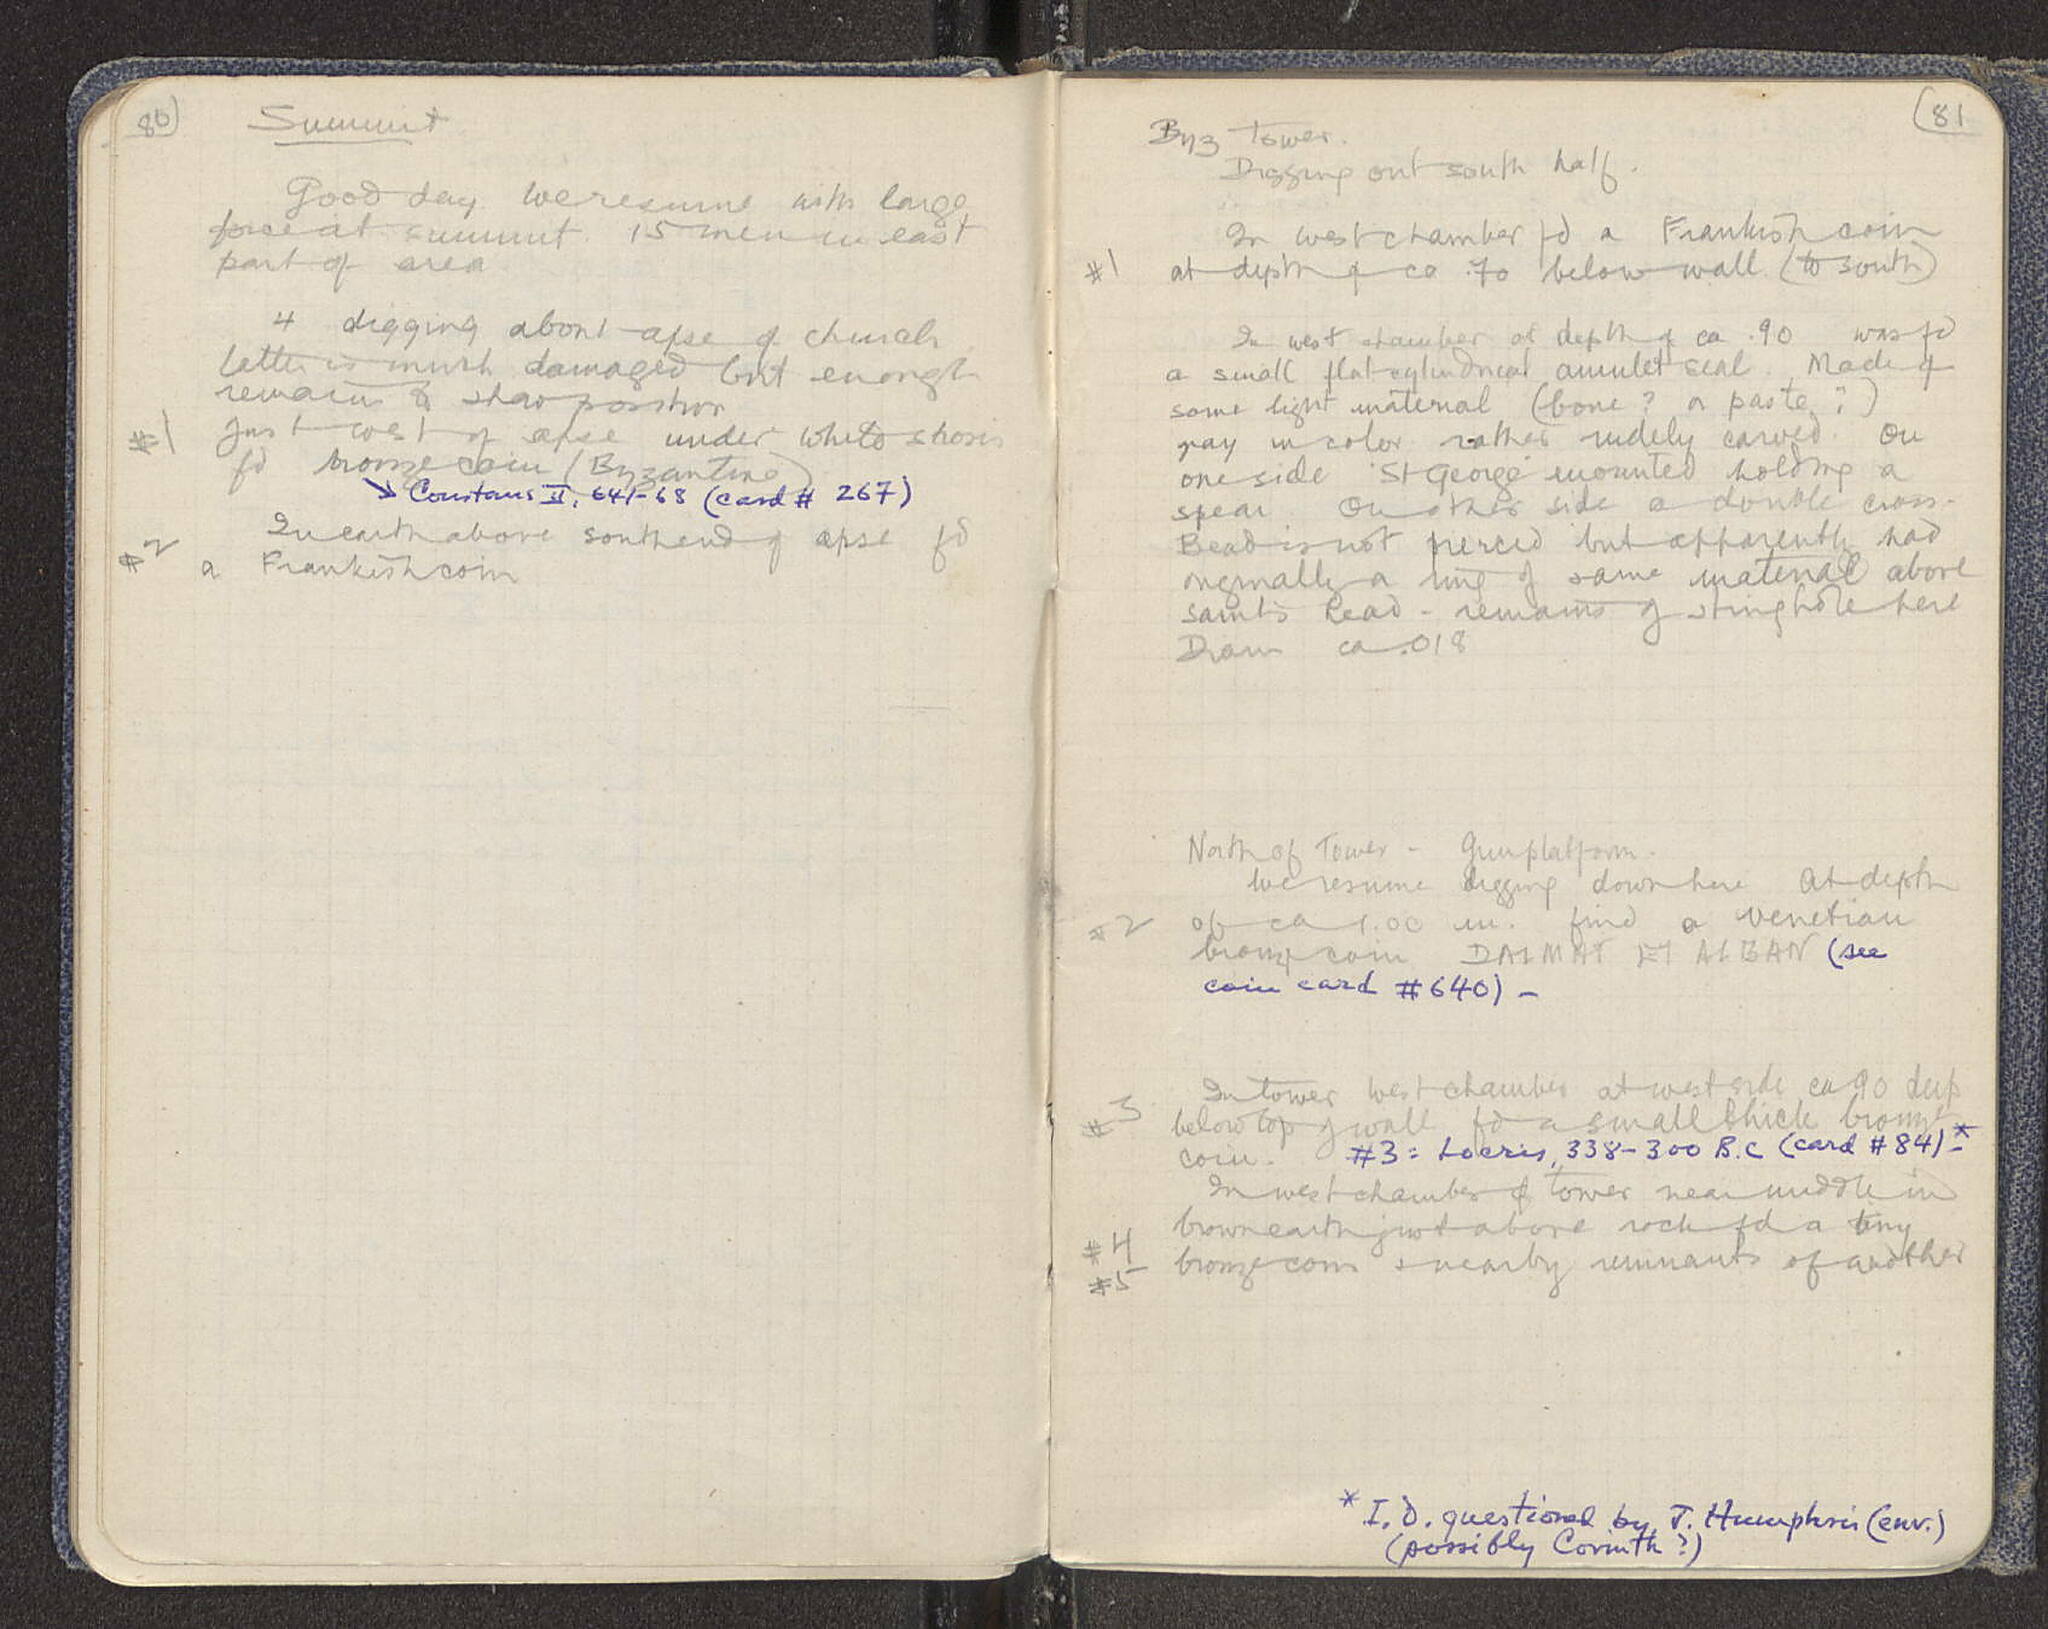 80)
Summit
Good day. We resume with large
force at summit. 15 men in east
part of area
4 digging about apse of church
latter is much damaged but enough
remains to show position
#1 Just west of apse under white
fd bronze coin (Byzantine)
↘ Constans II, 641-68 (card # 267)
In earth above south end of apse fd
#2 a Frankish coin
(81
Byz Tower.
Digging out south half.
In west chamber fd a Frankish coin
#1 at depth of ca .70 below wall (to south)
In west chamber at depth of ca .90 was fd
a small flat cylindrical amulet seal. Made of
some light material (bone? or paste?)
gray in color rather rudely carved. On
one side St George mounted holding a
spear. On other side a double cross.
Bead is not pierced but apparently had
originally a ring of same material above
saint's head - remains of string hole here
Diam ca .018
North of Tower - Gun platform.
We resume digging down here At depth
#2 of ca 1.00 m. find a Venetian
bronze coin DALMAT ET ALBAN (see
coin card #640) -
In tower west chamber at west side ca 90 deep
#3 below top of wall fd a small thick bronze
coin. #3 = Locris, 338-300 B.C (card #84)-*
In west chamber of tower near middle in
brown earth just above rock fd a tiny
#4 bronze coin & nearby remnants of another
#5
* I.D. questioned by J. Humphris (env.)
(possibly Corinth?)